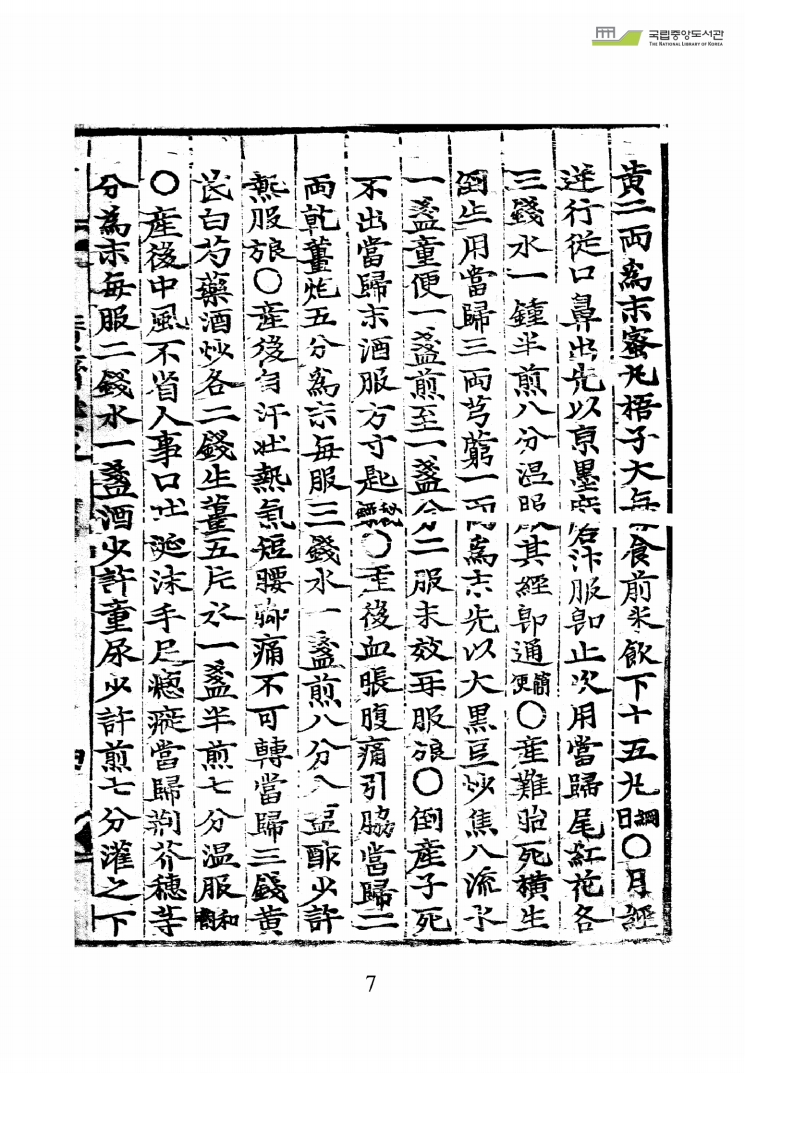 국립중앙도서관
THE NATIONAL LIBRARY OF KOREA
黃二兩爲末蜜丸梧子大每食前米飮下十五丸綱目○月經
逆行從口鼻出先以京墨磨汁服卽止次用當歸尾紅花各
三錢水一鍾半煎八分温服其經卽通簡便○産難胎死橫生
倒生用當歸三兩芎藭一兩爲末先以大黑豆炒焦入流水
一盞童便一盞煎至一盞分二服未效再服良○倒産子死
不出當歸末酒服方寸匙○産後血脹腹痛引脇當歸二
兩乾薑炮五分爲末每服三錢水一盞煎八分入塩酢少許
熱服良○産後自汗壯熱氣短腰脚痛不可轉當歸三錢黃
芪白芍藥酒炒各二錢生薑五片水一盞半煎七分温服和
○産後中風不省人事口吐涎沫手足瘛瘲當歸荊芥穗等
分爲末每服二錢水一盞酒少許童尿少許煎七分灌之下
7